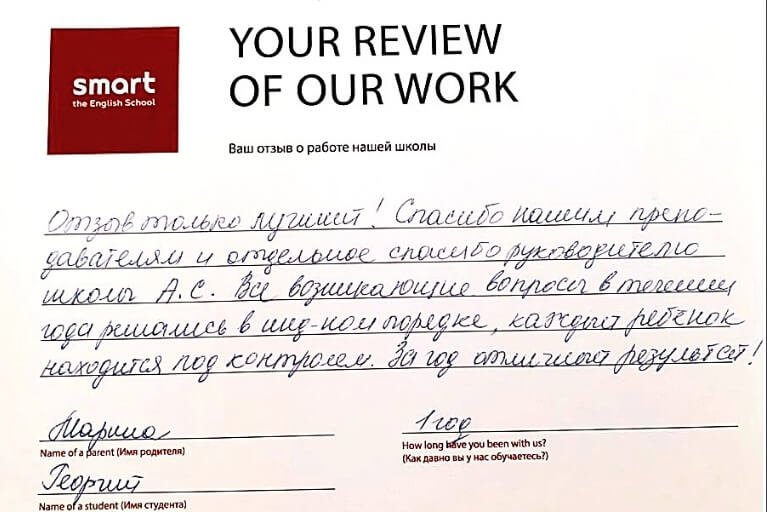 smart
the English School
YOUR REVIEW
OF OUR WORK
Ваш отзыв о работе нашей школы
Отзыв только лучший! Спасибо нашим препо-
давателям и отдельное спасибо руководителю
школы А.С. Все возникающие вопросы в течении
года решались в инд-ном порядке, каждый ребёнок
находится под контролем. За год отличный результат!
Марина
1 год
Name of a parent (Имя родителя)
How long have you been with us?
(Как давно вы у нас обучаетесь?)
Георгий
Name of a student (Имя студента)